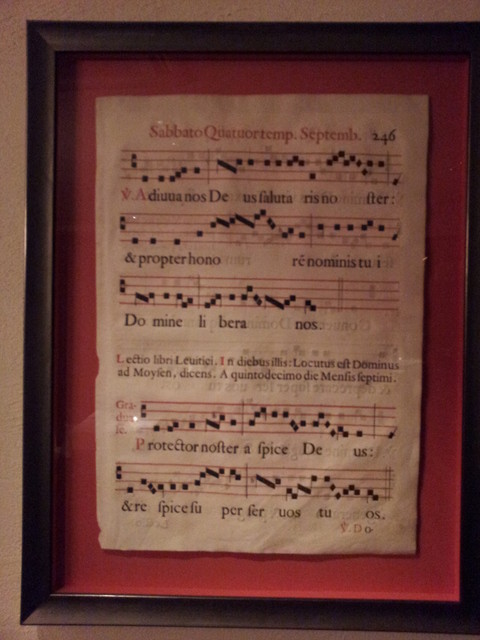 Sabbato Quatuor temp. Septemb. 246
℣. Adiuua nos De us saluta ris no ster:
& propter hono rē nominis tu i
Do mine li bera nos.
Lectio libri Leuitici. In diebus illis: Locutus est Dominus
ad Moysen, dicens. A quintodecimo die Mensis septimi.
Gra-
dua-
le.
Protector noster a spice De us:
& re spice su per ser uos tu os.
℣. Do